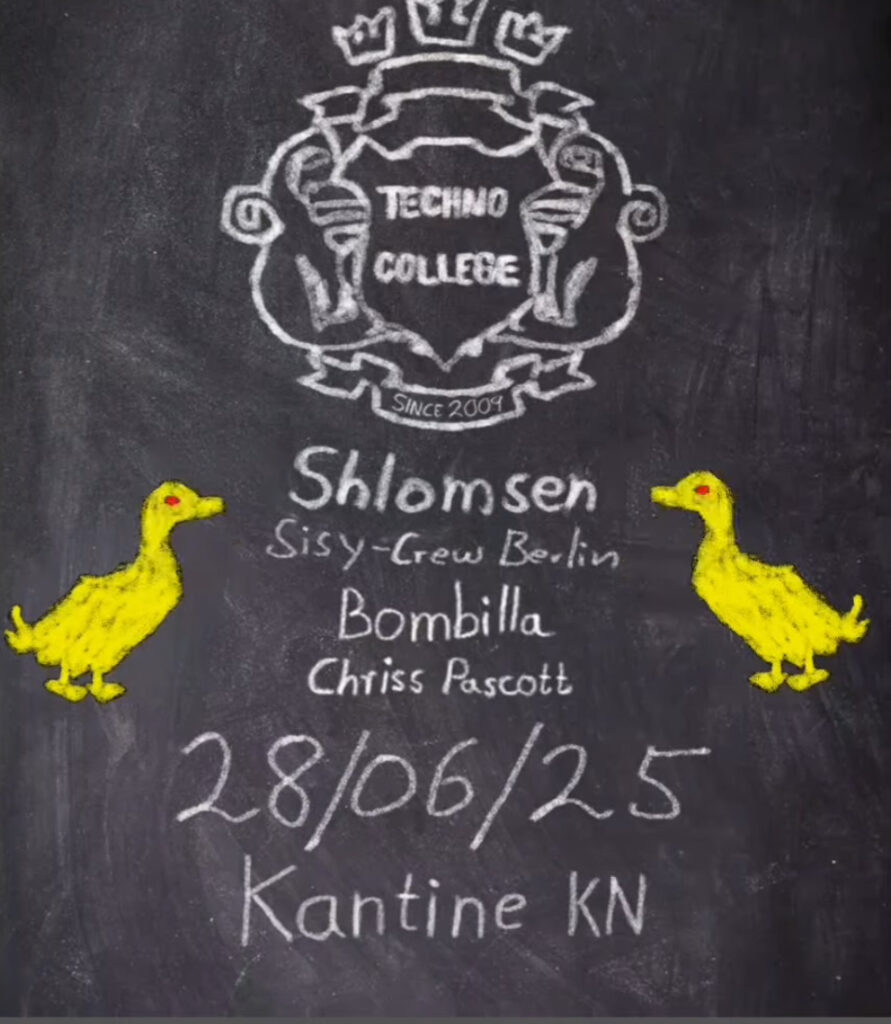 TECHNO
COLLEGE
SINCE 2009
Shlomsen
Sisy-Crew Berlin
Bombilla
Chriss Pascott
28/06/25
Kantine KN